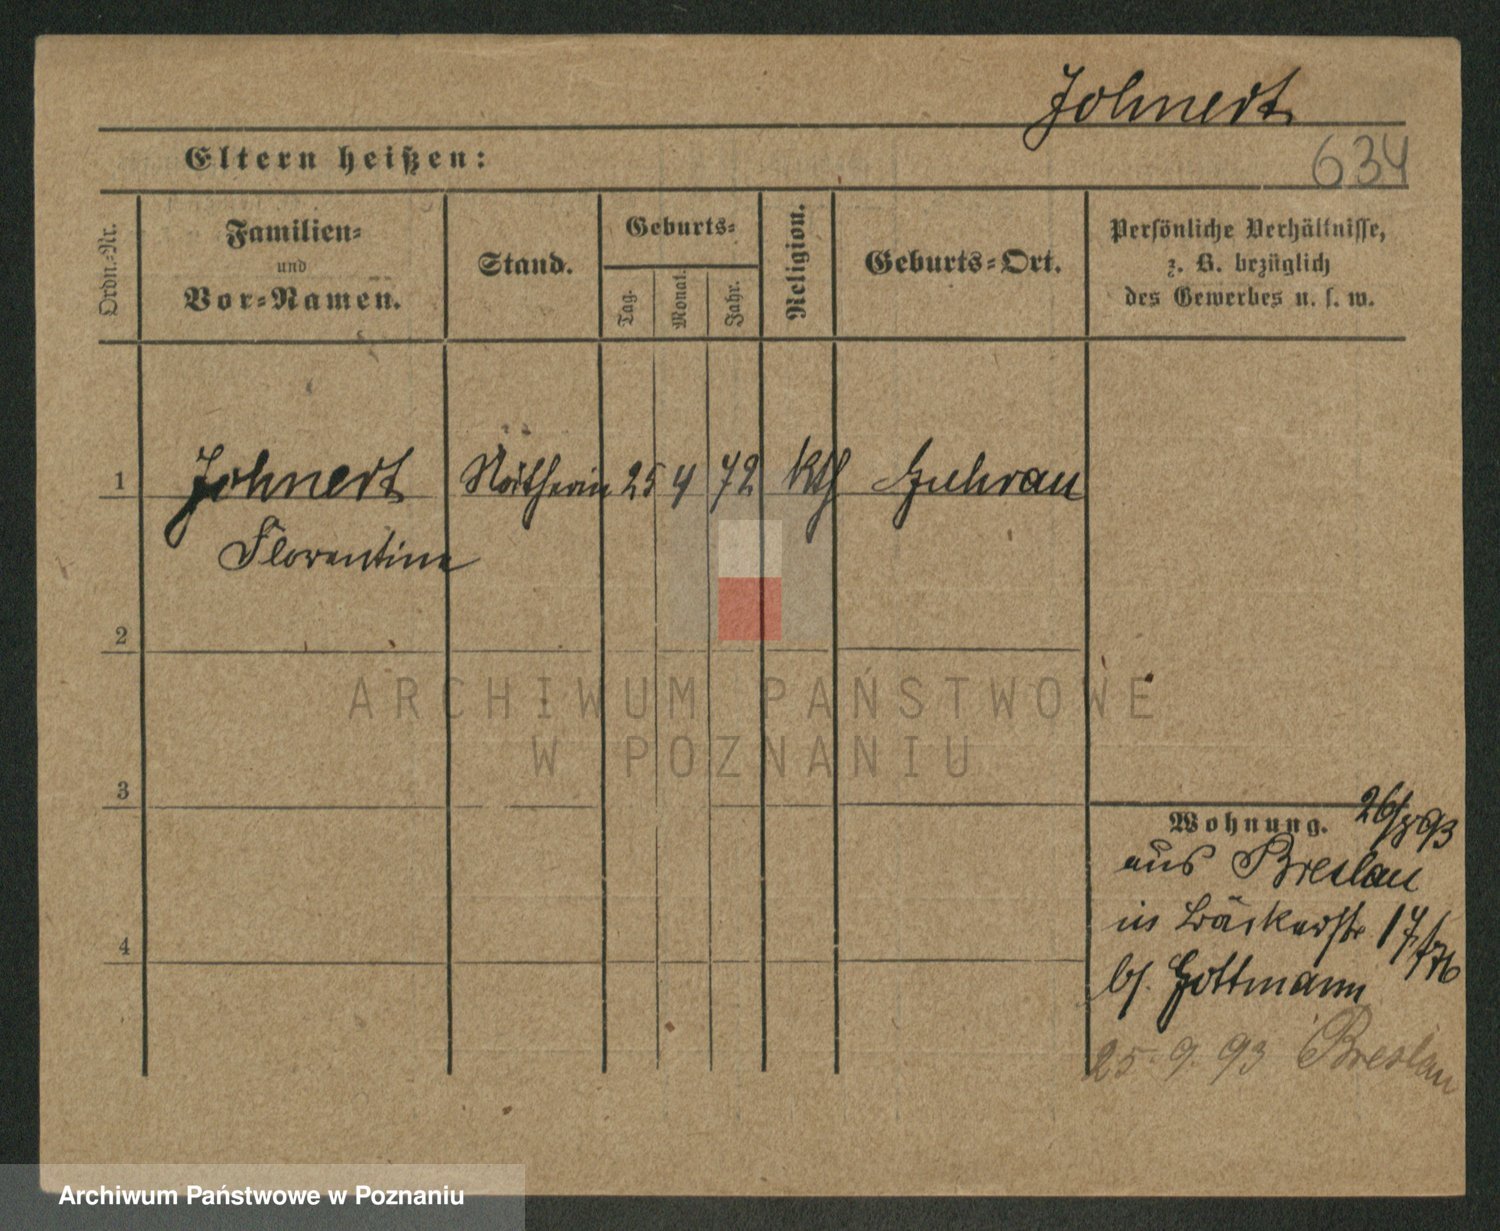 Johnert
634
Eltern heißen:
Ordn.-Nr.
Familien-
und
Vor-Namen.
Stand.
Geburts-
Tag.
Monat.
Jahr.
Religion.
Geburts-Ort.
Persönliche Verhältnisse,
z. B. bezüglich
des Gewerbes u. s. w.
1 Johnert Näitherin 25 4 72 kth Guhrau
Florentine
2
ARCHIWUM PAŃSTWOWE
W POZNANIU
3
Wohnung. 26/8 93
aus Breslau
in Bäckerstr 17
b/. Guttmann
25. 9. 93 Breslau
4
Archiwum Państwowe w Poznaniu